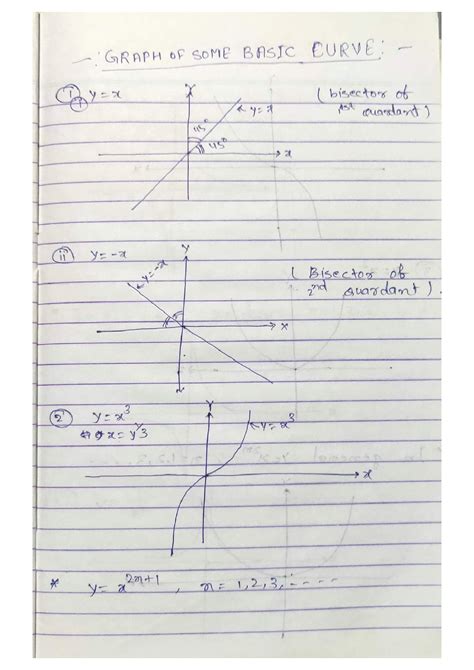 -: GRAPH OF SOME BASIC CURVE: -
① y = x
(i)
( bisector of
1st quardant )
Y
y = x
45°
45°
x
(ii) y = -x
Y
y = -x
( Bisector of
2nd quardant ).
x
② y = x³
x = y
3
Y
y = x³
x
* y = x²ⁿ⁺¹ , n = 1, 2, 3, - - - - -